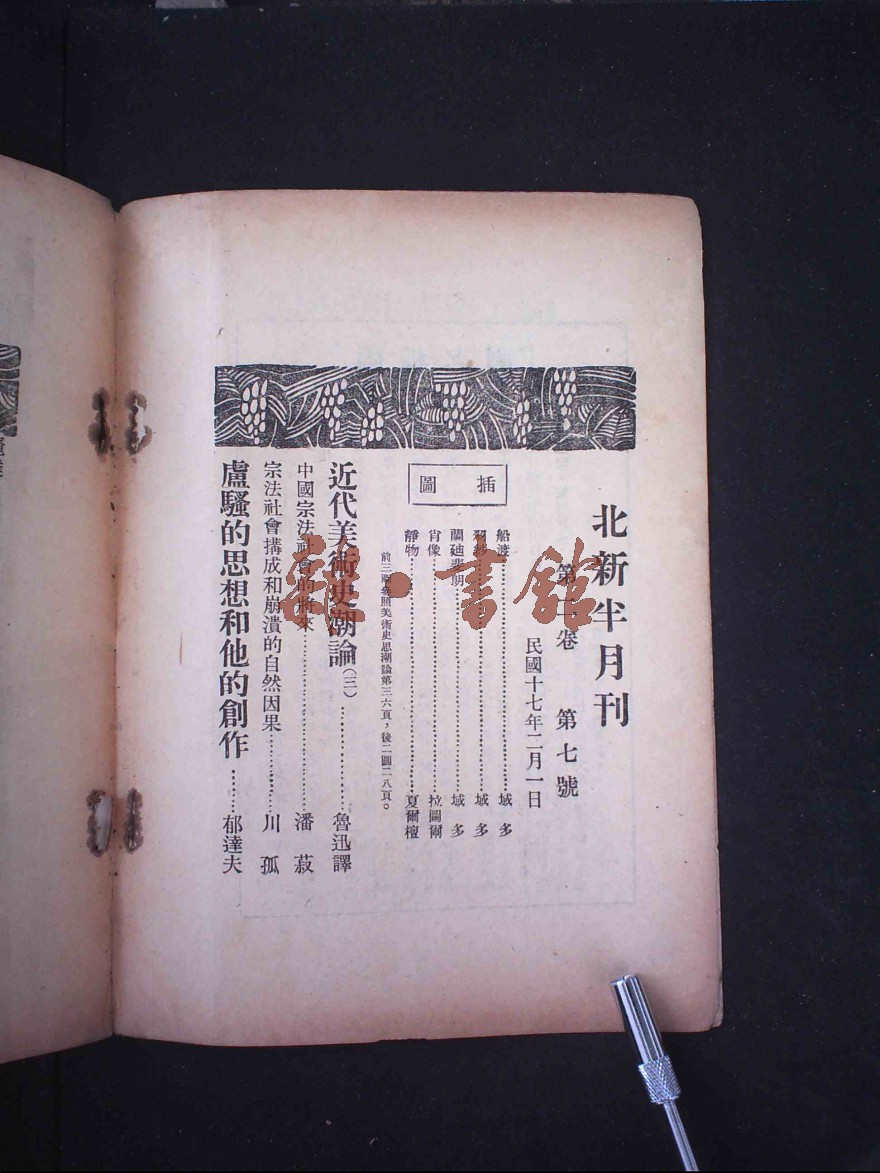 北新半月刊
第二卷 第七號
民國十七年二月一日
插圖
船渡………域多
域多
蘭迪斐朗………域多
肖像………拉圖爾
靜物………夏爾檀
前三圖參照美術史思潮論第三六頁，後二圖二八頁。
近代美術史潮論（三）………魯迅譯
中國宗法社會的將來………潘菽
宗法社會搆成和崩潰的自然因果………川孤
盧騷的思想和他的創作………郁達夫
雜·書館